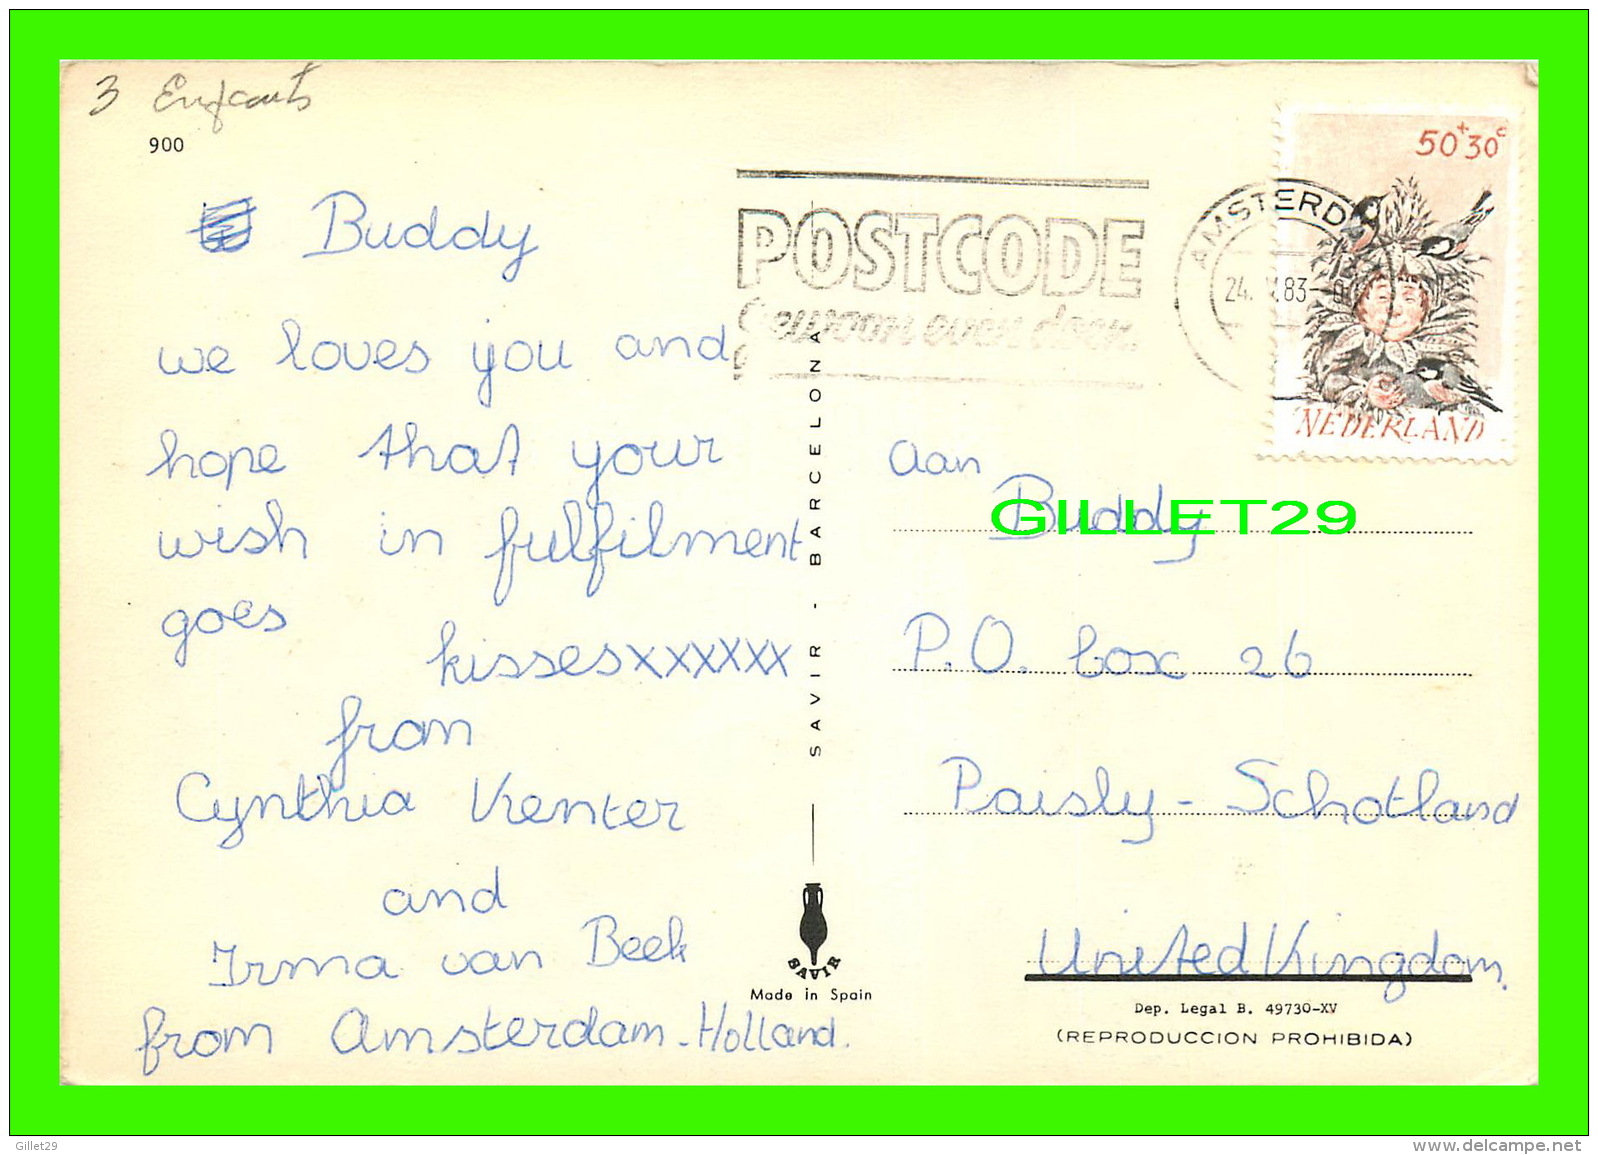 3 Enfants
900
Buddy
we loves you and
hope that your
wish in fulfilment
goes
kissesxxxxxx
from
Cynthia Krenter
and
Irma van Beek
from Amsterdam-Holland.
SAVIR - BARCELONA
SAVIR
Made in Spain
POSTCODE
AMSTERD
24. 83
50+30c
NEDERLAND
aan
Buddy
GILLET29
P.O. box 26
Paisly - Schotland
United Kingdom.
Dep. Legal B. 49730-XV
(REPRODUCCION PROHIBIDA)
Gillet29
www.delcampe.net